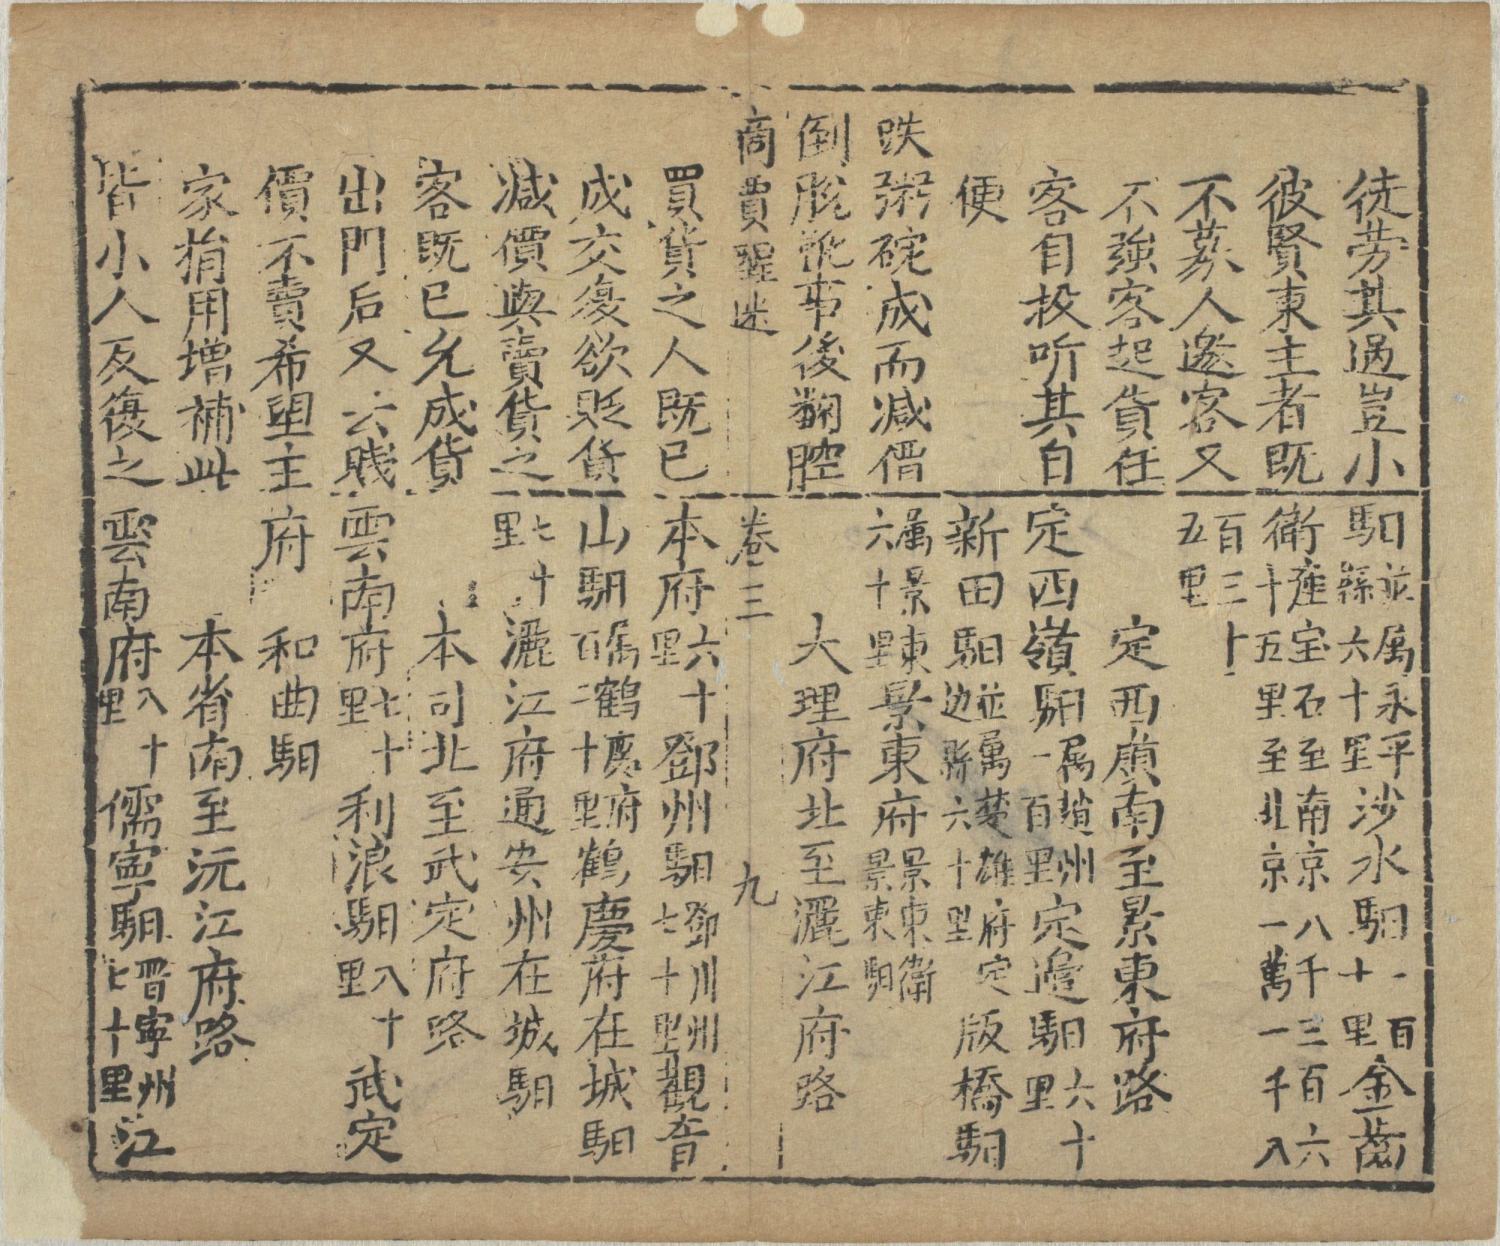 徒劳其過豈小
彼賢東主者既
不募人邀客又
不強客起貨任
客自投听其自
便
跌粥碗成而减價
倒靴事後翻腔
商賈醒迷
買貨之人既已
成交復欲貶貨
减價與賣貨之
客既已允成貨
出門后又云賤
價不賣希望主
家捐用增補此
皆小人反復之
馹並属永平縣六十里沙水馹一百十里金齒
衛座宝石至南京八千三百六十五里至北京一萬一千八
百三十五里
定西廣南至景東府路
定西嶺馹属趙州一百里定邉馹六十里
新田馹並属楚雄府定边縣六十里版橋馹
属景東六十里景東府景東衛景東馹
大理府北至灑江府路
卷三
九
本府六十里鄧州馹鄧川州七十里觀音
山馹属鶴慶府百二十里鶴慶府在城馹
七十里灑江府通安州在城馹
本司北至武定府路
雲南府七十里利浪馹八十里武定
府和曲馹
本省南至沅江府路
雲南府八十里儒寧馹晋寧州七十里江